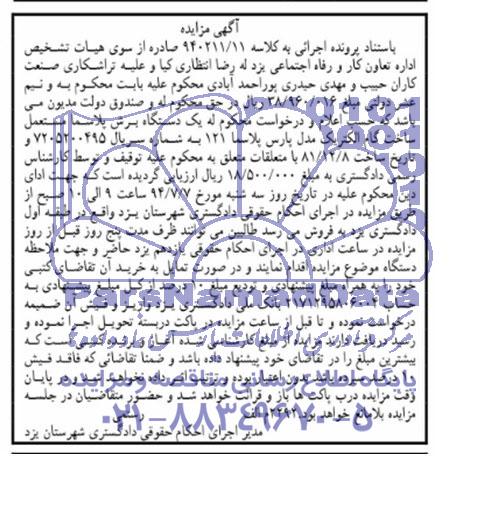 آگهی مزایده
باستناد پرونده اجرائی به کلاسه ۹۴۰۲۱۱/۱۱ صادره از سوی هیات تشخیص
اداره تعاون کار و رفاه اجتماعی یزد له رضا انتظاری کیا و علیه تراشکاری صنعت
کاران حبیب و مهدی حیدری پوراحمد آبادی محکوم علیه بابت محکوم به و نیم
عشر دولتی مبلغ ۳۸/۹۶۰/۰۱۶ ریال در حق محکوم له و صندوق دولت مدیون می
باشد که حسب اعلام و درخواست محکوم له یک دستگاه برش پلاسما مستعمل
ساخت گام الکتریک مدل پارس پلاسما ۱۲۱ به شماره سریال ۷۲۰۵۲۰۰۴۹۵ و
تاریخ ساخت ۸۱/۱۲/۸ با متعلقات متعلق به محکوم علیه توقیف و توسط کارشناس
رسمی دادگستری به مبلغ ۱۸/۵۰۰/۰۰۰ ریال ارزیابی گردیده است که جهت ادای
دین محکوم علیه در تاریخ روز سه شنبه مورخ ۹۴/۷/۷ ساعت ۹ الی ۱۰ صبح از
طریق مزایده در اجرای احکام حقوقی دادگستری شهرستان یزد واقع در طبقه اول
دادگستری یزد به فروش می رسد طالبین می توانند ظرف مدت پنج روز قبل از روز
مزایده در ساعت اداری در اجرای احکام حقوقی یازدهم یزد حاضر و جهت ملاحظه
دستگاه موضوع مزایده اقدام نمایند و در صورت تمایل به خرید آن تقاضای کتبی
خود را به همراه مبلغ پیشنهادی و تودیع مبلغ ۱۰ درصد از کل مبلغ پیشنهادی به
بانک ملی دادگستری یزد واریز و فیش آن ضمیمه
درخواست نموده و تا قبل از ساعت مزایده در پاکت دربسته تحویل اجرا نموده و
رسید دریافت دارند مزایده از مبلغ کارشناسی شده آغاز و برنده کسی است که
بیشترین مبلغ را در تقاضای خود پیشنهاد داده باشد و ضمنا تقاضائی که فاقد فیش
۱۰ درصد سپرده باشد بدون اعتبار بوده و ترتیب اثر داده نخواهد شد و در پایان
وقت مزایده درب پاکت ها باز و قرائت خواهد شد و حضور متقاضیان در جلسه
مزایده بلامانع خواهد بود.
رستمی
مدیر اجرای احکام حقوقی دادگستری شهرستان یزد
پایگاه اطلاع رسانی مناقصه و مزایده
۰۲۱-۸۸۳۴۹۶۷۰-۵